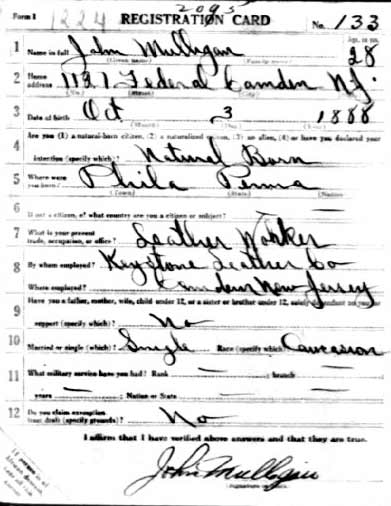 2095
Form 1 1224 REGISTRATION CARD No. 133
1 Name in full John Mulligan Age, in yrs. 28
(Given name) (Family name)
2 Home address 1121 Federal Camden N.J.
(No.) (Street) (City)
3 Date of birth Oct 3 1888
(Month) (Day) (Year)
Are you (1) a natural-born citizen, (2) a naturalized citizen, (3) an alien, (4) or have you declared your
4 intention (specify which)? Natural Born
5 Where were you born? Phila Penna —
(Town) (State) (Nation)
6 — —
If not a citizen, of what country are you a citizen or subject?
7 What is your present trade, occupation, or office? Leather Worker
8 By whom employed? Keystone Leather Co
Where employed? Camden New Jersey
9 Have you a father, mother, wife, child under 12, or a sister or brother under 12, solely dependent on you for
support (specify which)? No
10 Married or single (which)? Single Race (specify which)? Caucasion
11 What military service have you had? Rank — ; branch —
years — ; Nation or State —
12 Do you claim exemption from draft (specify grounds)? No
I affirm that I have verified above answers and that they are true.
John Mulligan
(Signature or mark)